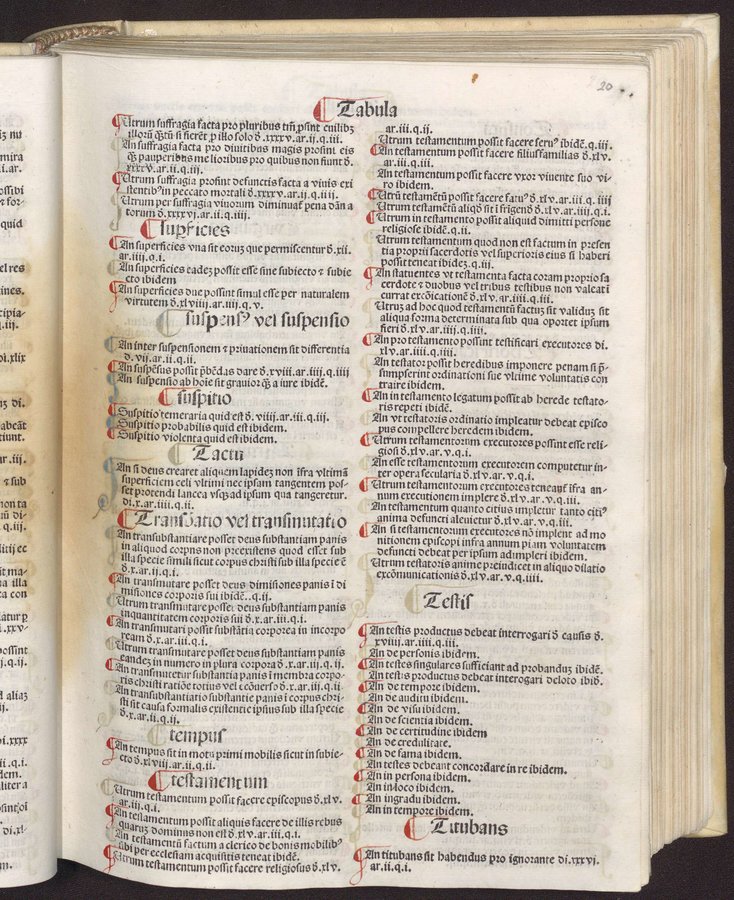 Tabula
20
Utrum suffragia facta pro pluribus tm̄ ꝓsint cuilibꝫ
illoꝝ q̄ꝫtū si fierēt ꝓ illo solo d̄.xxxv.ar.ij.q.iii.
An suffragia facta pro diuitibus magis prosint eis
q̄ꝫ pauperibus melioribus pro quibus non fiunt d̄.
xxxv.ar.ii.q.iij.
Utrum suffragia prosint defunctis facta a viuis exi
stentibꝰ in peccato mortali d̄.xxxv.ar.ij.q.iiij.
Utrum per suffragia viuorum diminuat᷑ pena dāna
torum d̄.xxxvj.ar.ii.q.iiij.
Supficies
An superficies vna sit eorum que permiscentur d̄.xii.
ar.iiij.q.i.
An superficies eadeꝫ possit esse sine subiecto ⁊ subie
cto ibidem
An superficies due possint simul esse per naturalem
virtutem d̄.xlviiij.ar.iiij.q.v.
Suspensꝰ vel suspensio
An inter suspensionem ⁊ priuationem sit differentia
d.vij.ar.ii.q.ii.
An suspēsus possit p̄bēdas dare d̄.xviii.ar.iiij.q.iiij
An suspensio ab hoīe sit grauior q̄ꝫ a iure ibidē.
Suspitio
Suspitio temeraria quid est d̄.viiij.ar.iii.q.iij.
Suspitio probabilis quid est ibidem.
Suspitio violenta quid est ibidem.
Tactu
An si deus crearet aliquem lapideꝫ non īfra vltimā
superficiem celi vltimi nec ipsam tangentem pos-
set protendi lancea vsqꝫ ad ipsum qua tangeretur.
di.x.ar.iiii.q.ii.
Trans̄b̄atio vel transmutatio
An transubstantiare posset deus substantiam panis
in aliquod corpus non preexistens quod esset sub
illa specie simili sicut corpus christi sub illa specie ē
d̄.x.ar.ij.q.i.
An transmutare posset deus dimisiones panis ī di
misiones corporis sui ibidē..q.ij.
Utrum transmutare posset deus substantiam panis
in quantitatem corporis sui d̄.x.ar.iii.q.i.
An transmutari possit substātia corporea in incorpo
ream d̄.x.ar.iii.q.i.
Utrum transmutare posset deus substantiam panis
eandeꝫ in numero in plura corpora d̄.x.ar.iij.q.ij.
An transmutetur substantia panis ī membra corpo-
ris christi ratiōe totius vel ecōuerso d̄.x.ar.iij.q.ii
An transubstantiatio substantie panis ī corpus chri-
sti sit causa formalis existentie ipsius sub illa specie
d̄.x.ar.ii.q.ij.
tempus
An tempus sit in motu primi mobilis sicut in subie-
cto d̄.xlviij.ar.ii.q.ii.
testamentum
Utrum testamentum possit facere episcopus d̄.xlv.
ar.iij.q.i.
An testamentum possit aliquis facere de illis rebus
quaruꝫ dominus non est d̄.xlv.ar.iii.q.i.
An testamentū factum a clerico de bonis mobilibꝰ
sibi per ecclesiam acquisitis teneat ibidē.
Utrum testamentum possit facere religiosus d̄.xlv.
ar.iii.q.ij.
Utrum testamentum possit facere seruꝰ ibidē.q.iij
An testamentum possit facere filiusfamilias d̄.xlv.
ar.iii.q.iii.
An testamentum possit facere vxor viuente suo vi-
ro ibidem.
Utrū testamētū possit facere fatuꝰ d̄.xlv.ar.iii.q.iiij
Utrum testamētū aliqd̄ sit īfrigend̄ d̄.xlv.ar.iiij.q.i.
Utrum in testamento possit aliquid dimitti persone
religiose ibidē.q.ii.
Utrum testamentum quod non est factum in presen
tia proprii sacerdotis vel superioris eius si haberi
possit teneat ibideꝫ.q.iij.
An statuentes vt testamenta facta coram proprio sa
cerdote ⁊ duobus vel tribus testibus non valeāt ī
currat excōicationē d̄.xlv.ar.iiii.q.iii.
Utruꝫ ad hoc quod testamentū factuꝫ sit validuꝫ sit
aliqua forma determinata sub qua oportet ipsum
fieri d̄.xlv.ar.iiij.q.iiii.
An pro testamento possint testificari executores di.
xlv.ar.iiii.q.iiii.
An testator possit heredibus imponere penam si p̄-
sumpserint ordinationi sue vltime voluntatis con
traire ibidem.
An in testamento legatum possit ab herede testato-
ris repeti ibidē.
An vt testatoris ordinatio impleatur debeat episco
pus compellere heredem ibidem.
Utrum testamentorum executores possint esse reli-
giosi d̄.xlv.ar.v.q.i.
An esse testamentorum executorem computetur in-
ter opera secularia d̄.xlv.ar.v.q.i.
Utrum testamentorum executores teneant᷑ īfra an-
num executionem implere d̄.xlv.ar.v.q.iii.
An testamentum quanto citius impletur tanto citiꝰ
anima defuncti aleuietur d̄.xlv.ar.v.q.iii.
An si testamentorum executores nō implent ad mo
nitionem episcopi infra annum piam voluntatem
defuncti debeat per ipsum adimpleri ibidem.
Utrum testatoris anime preiudicet in aliquo dilatio
excōmunicationis d̄.xlv.ar.v.q.iiii.
Testis
An testis productus debeat interrogari d̄ causis d̄.
xviiij.ar.iiii.q.iii.
An de personis ibidem.
An testes singulares sufficiant ad probanduꝫ ibidē.
An testis productus debeat interrogari deloto ibid̄.
An de tempore ibidem.
An de auditu ibidem.
An de visu ibidem.
An de scientia ibidem.
An de certitudine ibidem
An de credulitate.
An de fama ibidem.
An testes debeant concordare in re ibidem.
An in persona ibidem.
An in loco ibidem.
An in gradu ibidem.
An in tempore ibidem.
Titubans
An titubans sit habendus pro ignorante di.xxxvi.
ar.ii.q.i.